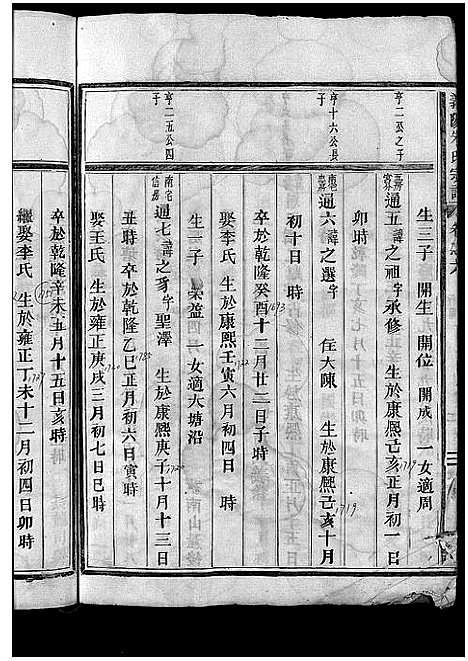 生三子 開生 開位 開成 一女適周
亨二公之子
通五 諱之祖 字承修 生於康熙己亥正月初一日 1719
卯時
亨十六公長子
通六 諱之選 字 在大陳 生於康熙己亥十月 1719
初十日 時
卒於乾隆癸酉十二月廿二日子時
娶李氏 生於康熙壬寅六月初四日 時 1722
生一子 榮益 一女適大塘沿
亨二五公四子
南宅信房
通七 諱之身 字聖澤 生於康熙庚子十月十三日 1720
丑時 卒於乾隆乙巳年六月初六日寅時 1785
娶王氏 生於雍正庚戌三月初七日巳時
卒於乾隆辛未五月十五日亥時
繼娶李氏 生於雍正丁未十二月初四日卯時 1727